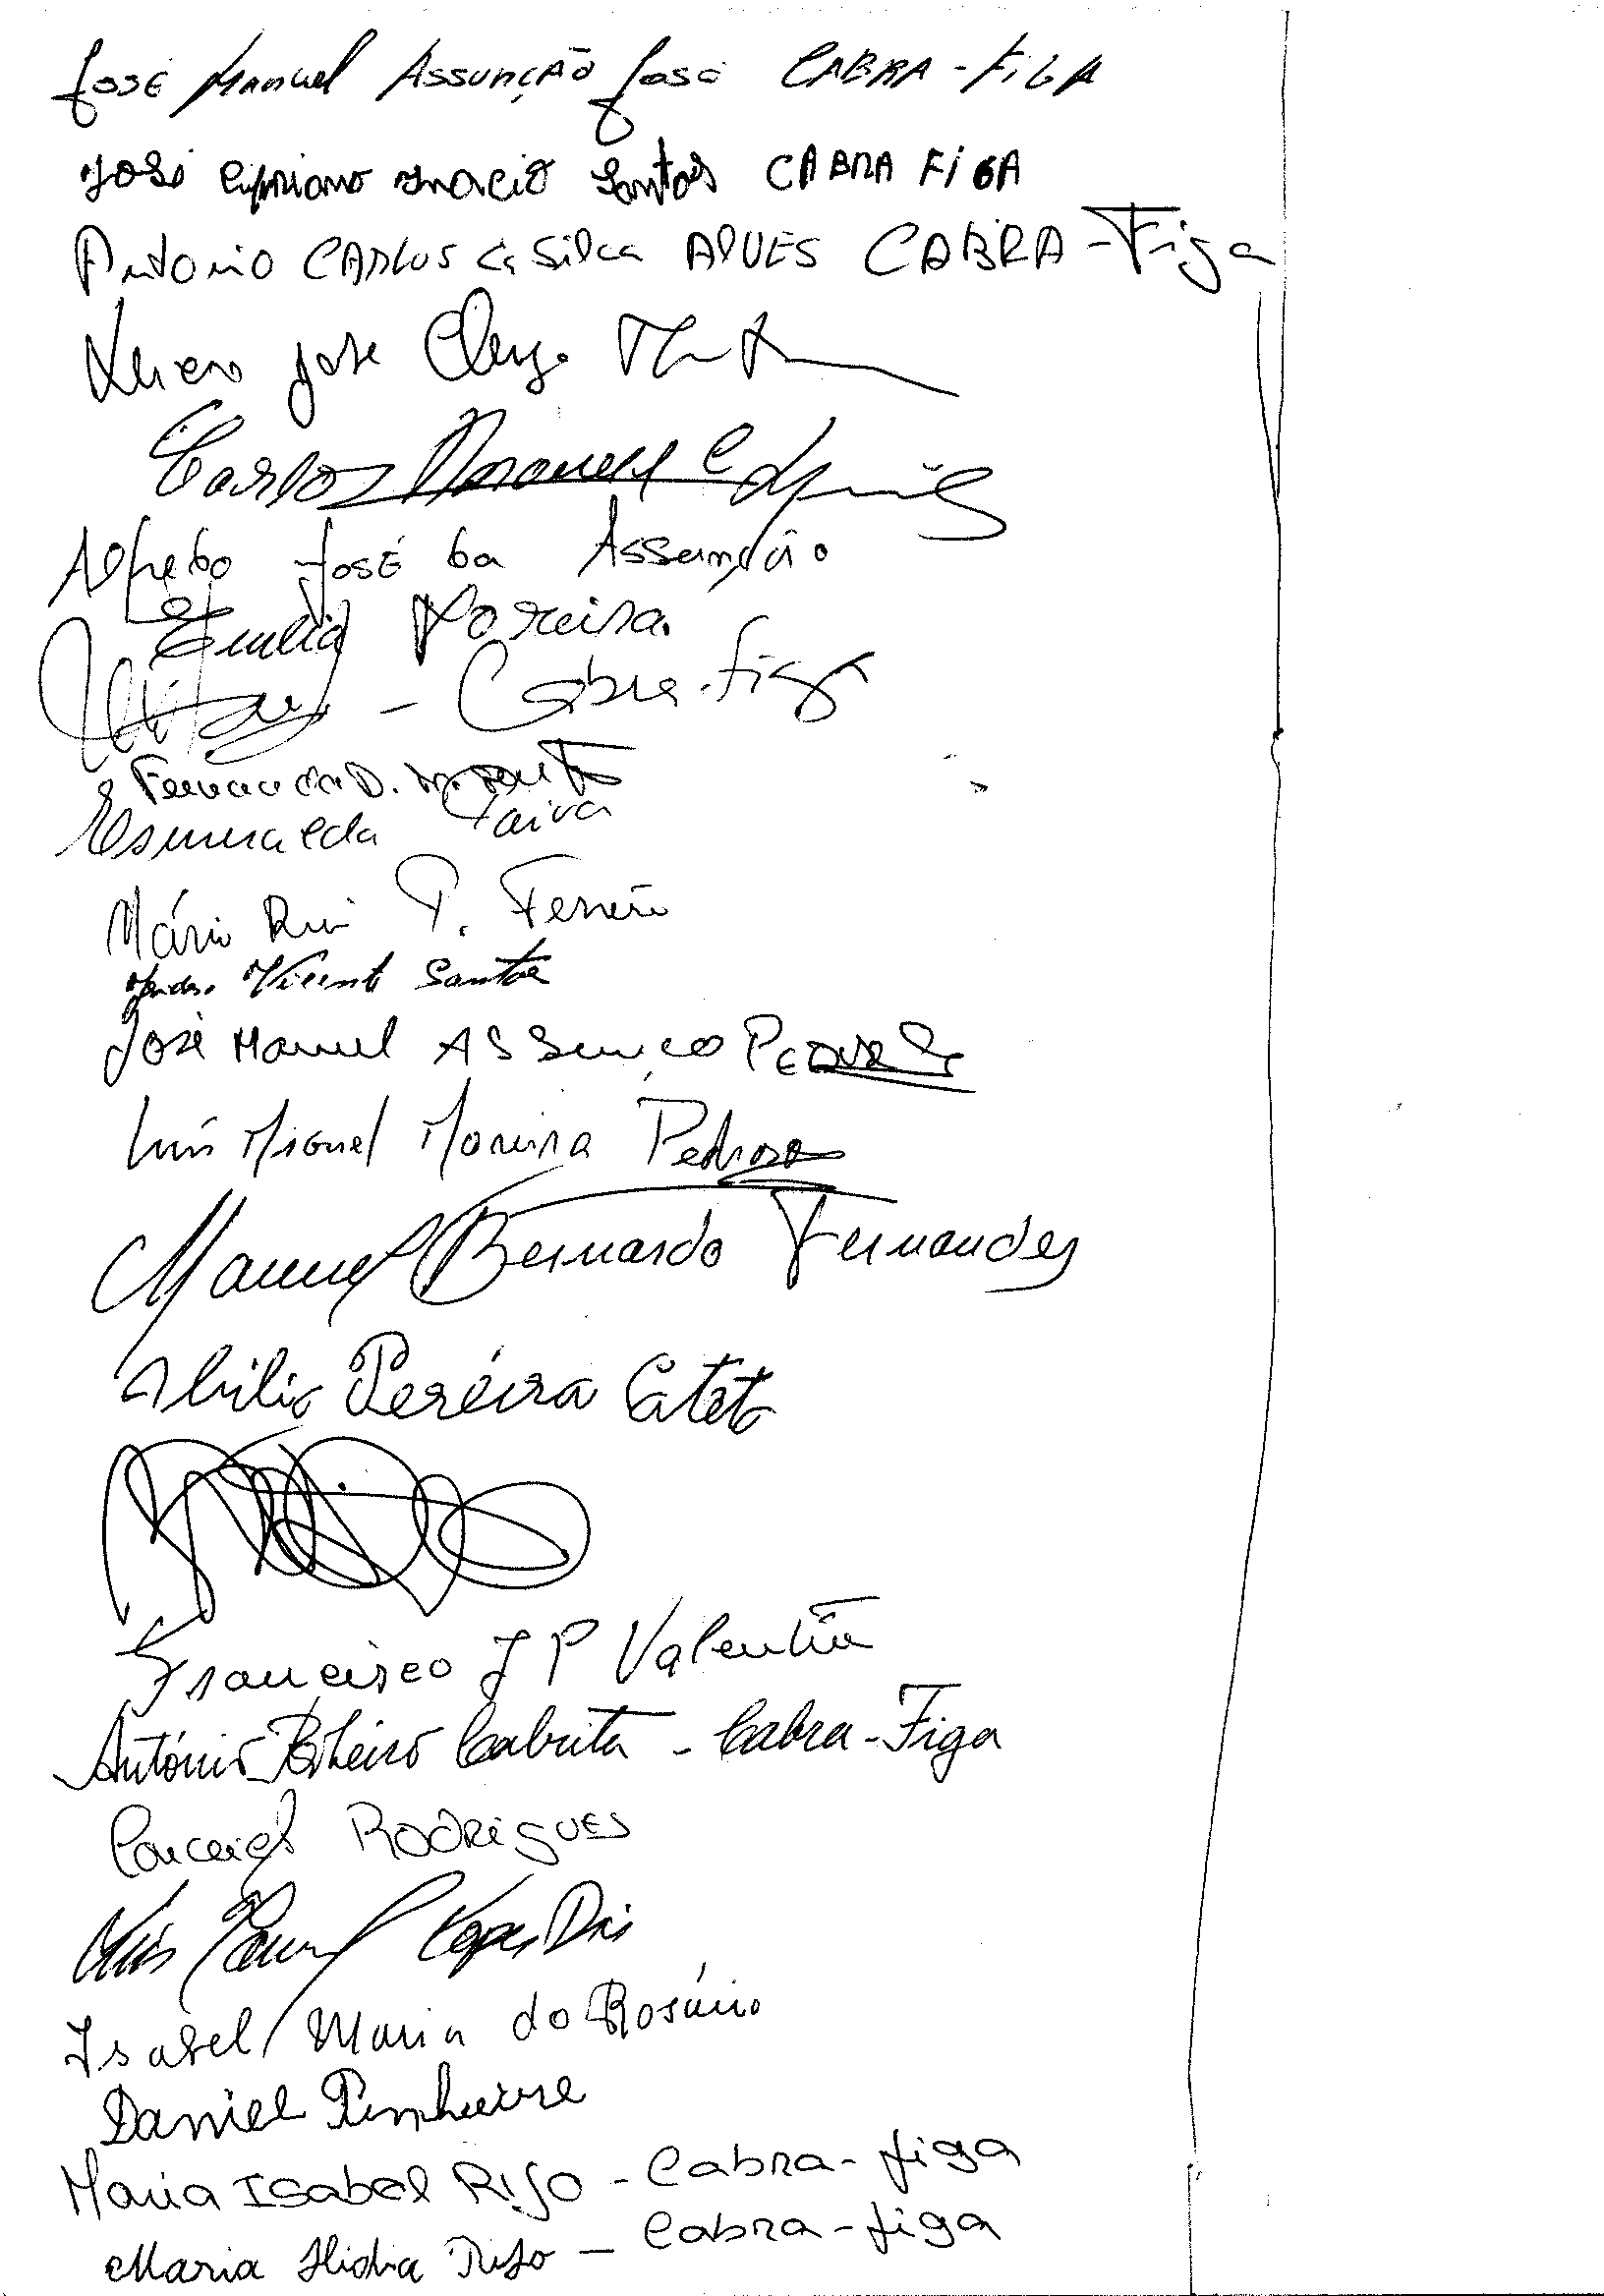 José Manuel Assunção José CABRA-FIGA
José Cipriano Inacio Santos CABRA FIGA
Antonio CARLOS da Silva ALVES CABRA-Figa
José
Carlos Manuel
Alfredo José da Assunção
Emilia Moreira
- Cabra-figa
Fernanda D.
Esmeralda Paiva
Mário Rui P. Ferreira
Vicente Santos
José Manuel Assunção Pedroso
Luís Miguel Moreira Pedroso
Manuel Bernardo Fernandes
Abilio Pereira Cateto
Francisco J P Valentim
António Ribeiro Cabrita - Cabra-Figa
Conceição RODRIGUES
Luis Manuel Lopes Dias
Isabel Maria do Rosário
Daniel Pinheiro
Maria Isabel Rijo - Cabra-figa
Maria Ilidia Rijo - Cabra-figa